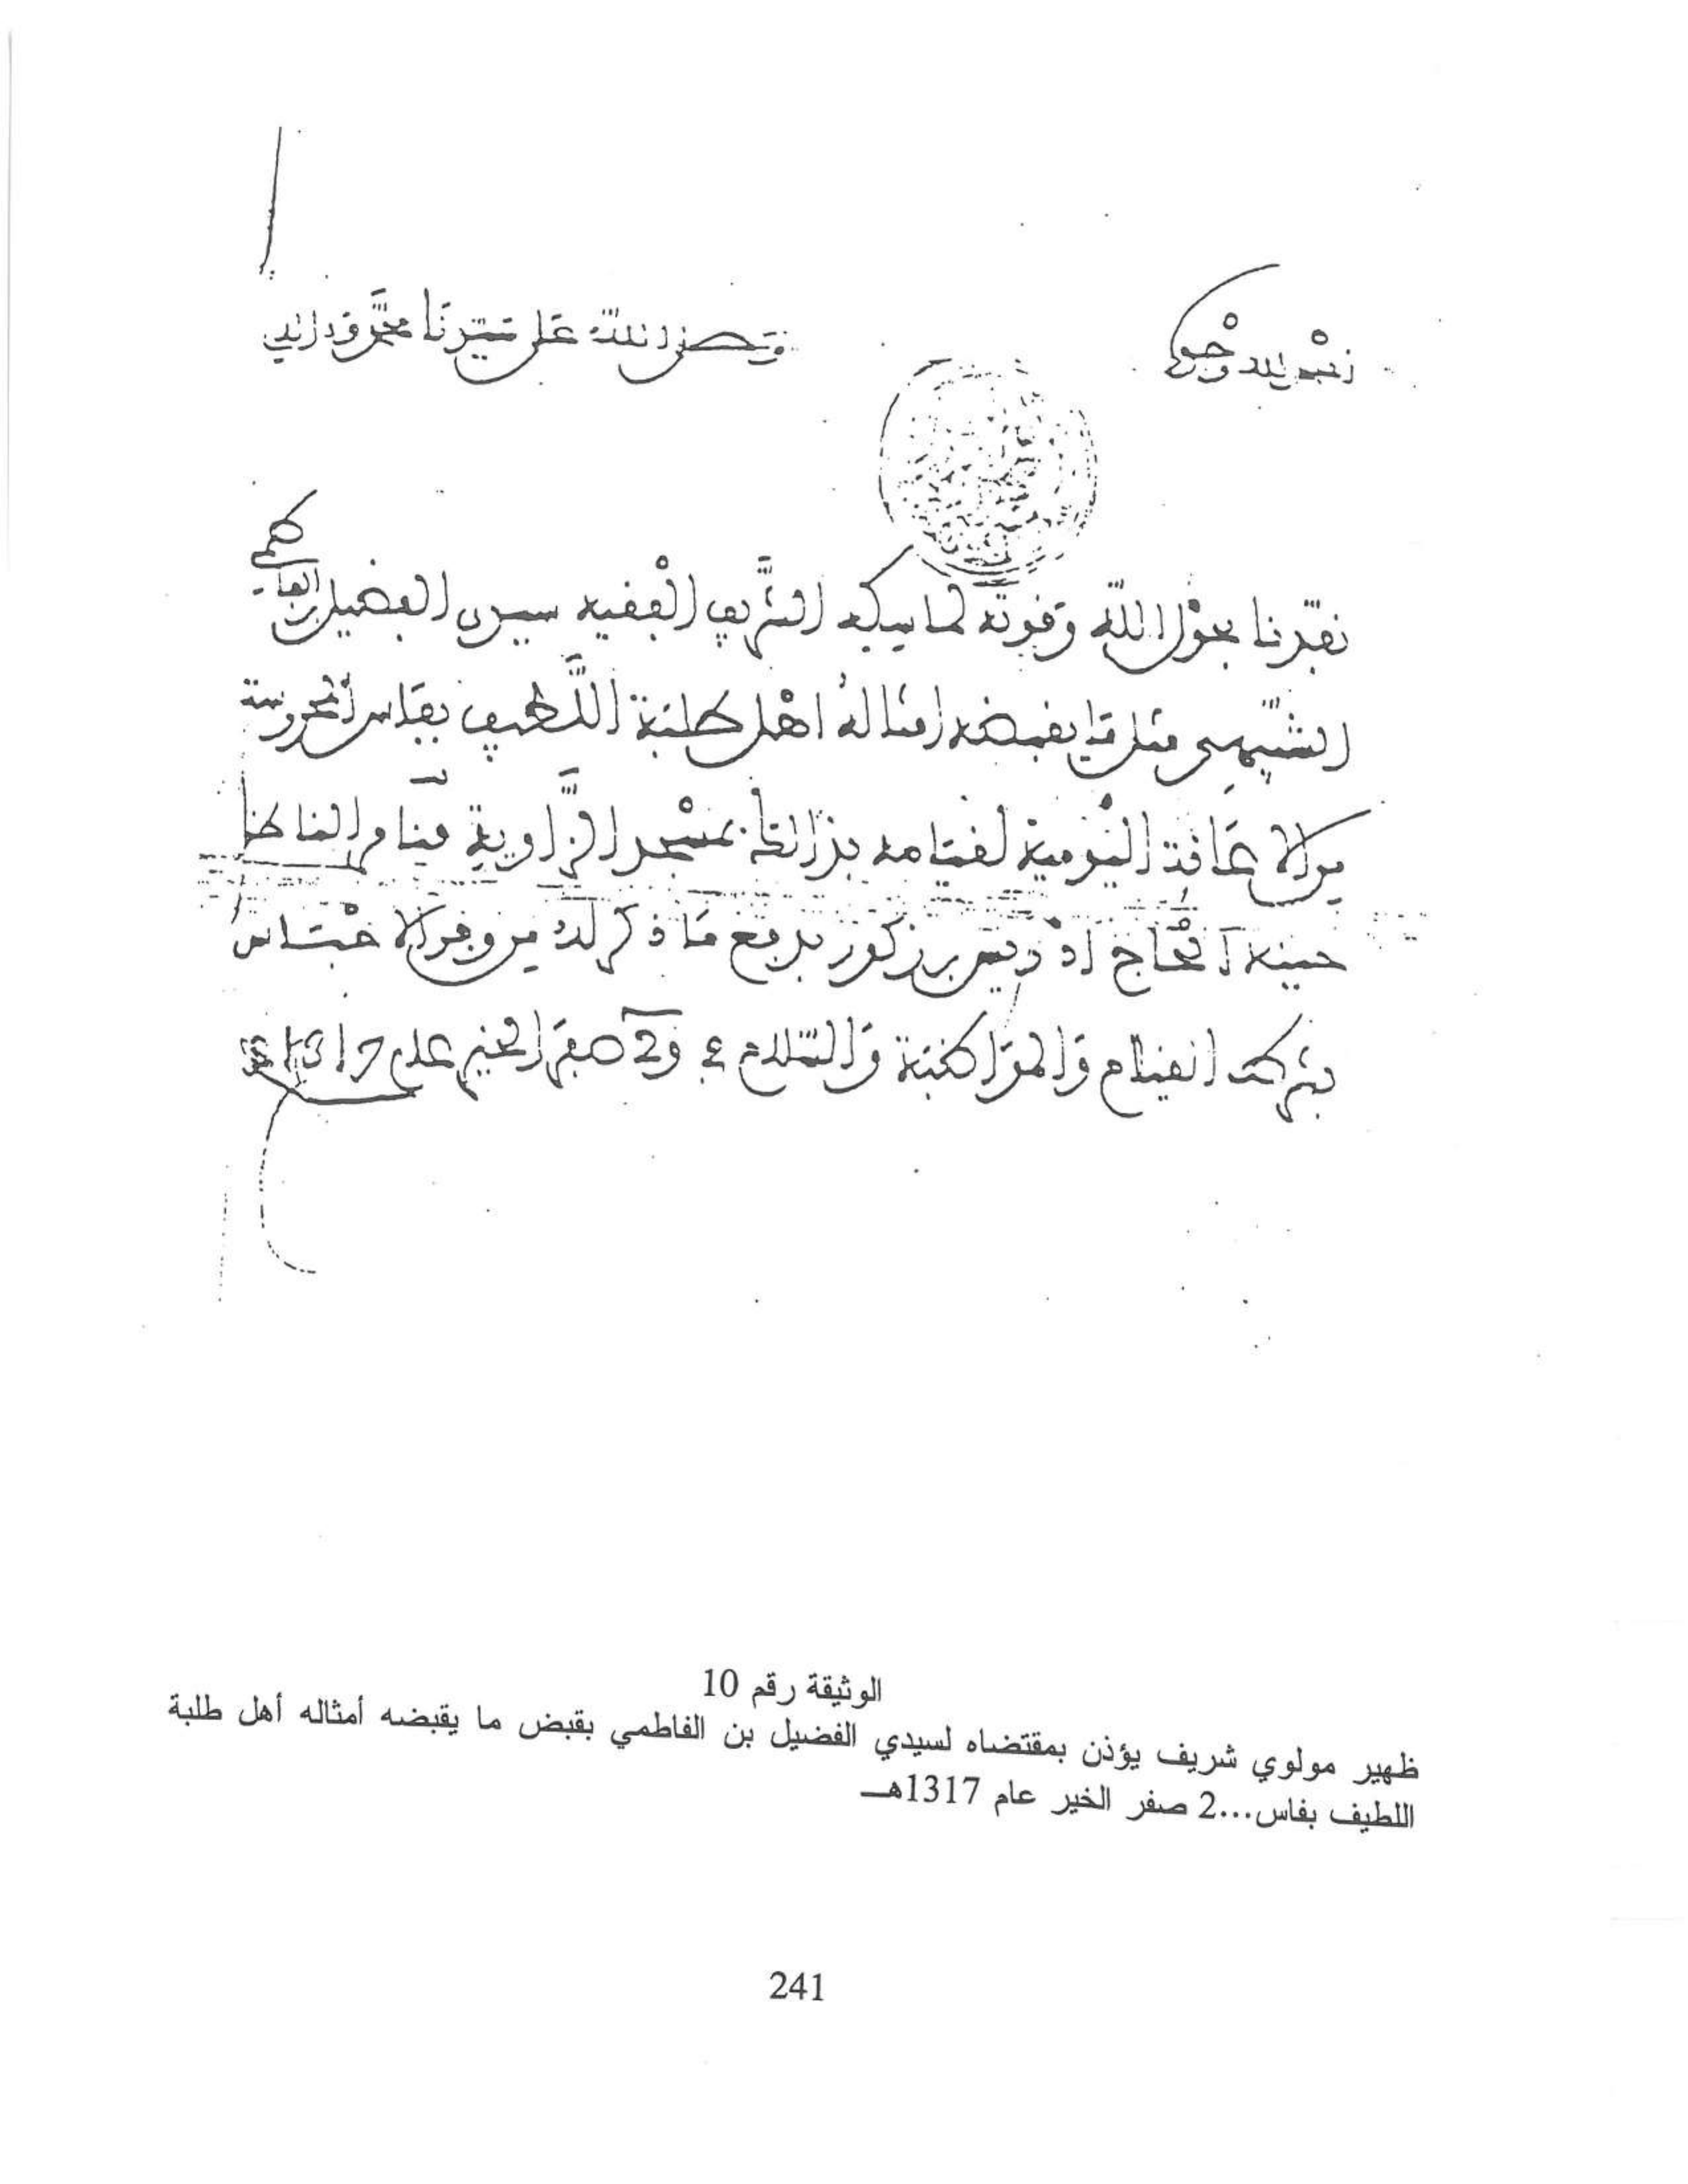 الحمد لله وحده
وصلى الله على سيدنا محمد وءاله
نفذنا بحول الله وقوته لماسكه الشريف الفقيه سيدي الفضيل بن الفاطمي
الشبيهي مثل ما يقبضه امثاله اهل طلبة اللطيف بفاس المحروسة
من الاعانة اليومية لقيامه بذالك بمسجد الزاوية فنامر الناظر
حينه الحاج ادريس بن زكور بدفع ما ذكر له من وفر الاحباس
بشرط القيام والمواظبة والسلام في 2 صفر الخير عام 1317
الوثيقة رقم 10
ظهير مولوي شريف يؤذن بمقتضاه لسيدي الفضيل بن الفاطمي بقبض ما يقبضه أمثاله أهل طلبة
اللطيف بفاس...2 صفر الخير عام 1317هـ
241